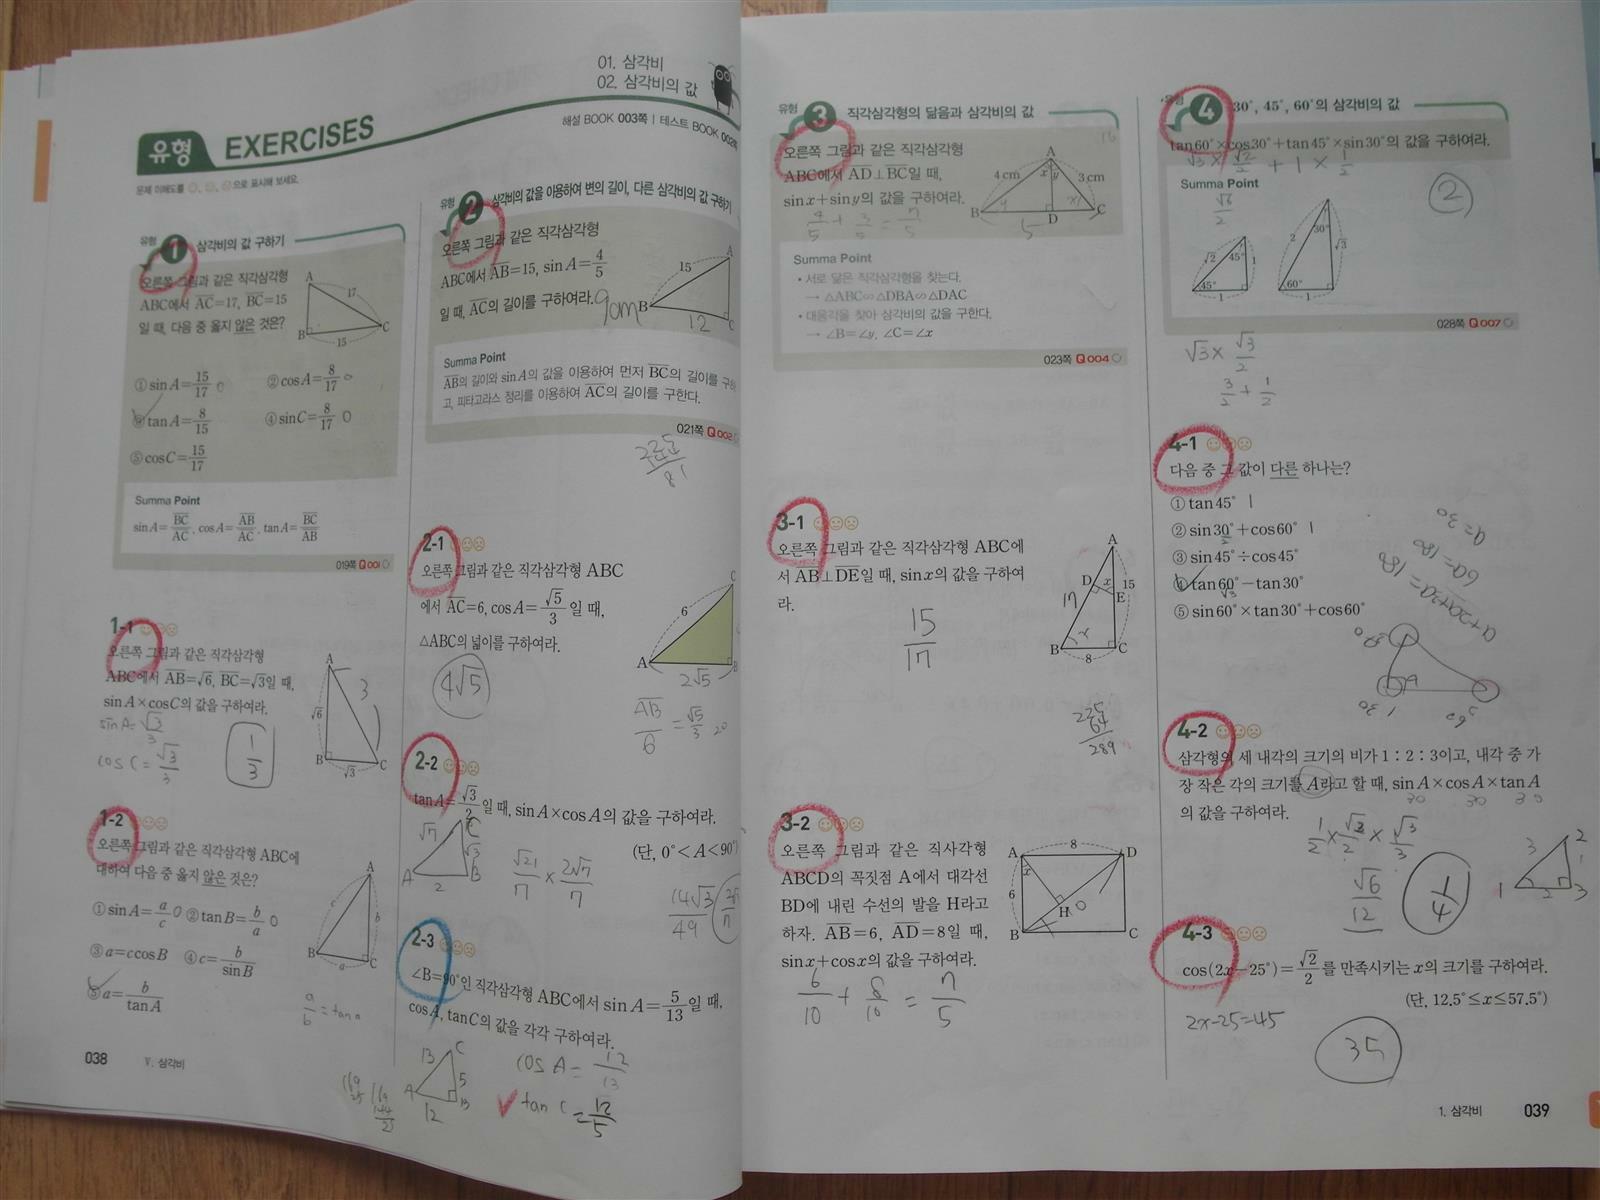 01. 삼각비
02. 삼각비의 값
유형 EXERCISES
해설 BOOK 003쪽 | 테스트 BOOK 002쪽
문제 이해도를 으로 표시해 보세요.
유형 1 삼각비의 값 구하기
오른쪽 그림과 같은 직각삼각형
ABC에서 AC=17, BC=15
일 때, 다음 중 옳지 않은 것은?
A
17
B
15
C
① sinA=15/17 ○ ② cosA=8/17 ○
③ tanA=8/15 ④ sinC=8/17 ○
⑤ cosC=15/17
Summa Point
sinA=BC/AC, cosA=AB/AC, tanA=BC/AB
019쪽 Q 001
1-1
오른쪽 그림과 같은 직각삼각형
ABC에서 AB=√6, BC=√3일 때,
sinA×cosC의 값을 구하여라.
sin A=√3/3
cos C=√3/3
1/3
A
√6
3
B
√3
C
1-2
오른쪽 그림과 같은 직각삼각형 ABC에
대하여 다음 중 옳지 않은 것은?
① sinA=a/c ○ ② tanB=b/a ○
③ a=c cosB ④ c=b/sinB
⑤ a=b/tanA
A
c
b
B
a
C
a/b=tan a
038 Ⅴ. 삼각비
유형 2 삼각비의 값을 이용하여 변의 길이, 다른 삼각비의 값 구하기
오른쪽 그림과 같은 직각삼각형
ABC에서 AB=15, sinA=4/5
일 때, AC의 길이를 구하여라.
9cm
A
15
B
12
C
Summa Point
AB의 길이와 sinA의 값을 이용하여 먼저 BC의 길이를 구하
고, 피타고라스 정리를 이용하여 AC의 길이를 구한다.
021쪽 Q 002
81
2-1
오른쪽 그림과 같은 직각삼각형 ABC
에서 AC=6, cosA=√5/3일 때,
△ABC의 넓이를 구하여라.
4√5
C
6
A
2√5
B
AB/6=√5/3 20
2-2
tanA=√3/2일 때, sinA×cosA의 값을 구하여라.
(단, 0°<A<90°)
√7
C
√3
A
2
B
√21/7 × 2√7/7
14√3/49
2-3
∠B=90°인 직각삼각형 ABC에서 sinA=5/13일 때,
cosA, tanC의 값을 각각 구하여라.
13
C
5
A
12
B
cos A=12/13
tan C=12/5
169
25
169
144
25
유형 3 직각삼각형의 닮음과 삼각비의 값
오른쪽 그림과 같은 직각삼각형
ABC에서 AD⊥BC일 때,
sinx+siny의 값을 구하여라.
4/5+3/5=7/5
16
A
4cm
x y
3cm
B
y
D
x
C
5
Summa Point
• 서로 닮은 직각삼각형을 찾는다.
→ △ABC∽△DBA∽△DAC
• 대응각을 찾아 삼각비의 값을 구한다.
→ ∠B=∠y, ∠C=∠x
023쪽 Q 004
3-1
오른쪽 그림과 같은 직각삼각형 ABC에
서 AB⊥DE일 때, sinx의 값을 구하여
라.
15/17
A
D
x
15
E
17
x
B
8
C
225
64
289
3-2
오른쪽 그림과 같은 직사각형
ABCD의 꼭짓점 A에서 대각선
BD에 내린 수선의 발을 H라고
하자. AB=6, AD=8일 때,
sinx+cosx의 값을 구하여라.
6/10+8/10=7/5
8
A
D
x
6
H
B
C
유형 4 30°, 45°, 60°의 삼각비의 값
tan60°×cos30°+tan45°×sin30°의 값을 구하여라.
√3×√2/2+1×1/2
Summa Point
√6/2
2
√2
45°
1
45°
1
2
30°
√3
60°
1
028쪽 Q 007
√3×√3/2
3/2+1/2
4-1
다음 중 그 값이 다른 하나는?
① tan45° 1
② sin30°+cos60° 1
③ sin45°÷cos45°
④ tan60°−tan30°
√3
⑤ sin60°×tan30°+cos60°
a+2a+3a=180
6a=180
a=30
90
30
60
4-2
삼각형의 세 내각의 크기의 비가 1:2:3이고, 내각 중 가
장 작은 각의 크기를 A라고 할 때, sinA×cosA×tanA
30 30 30
의 값을 구하여라.
1/2×√3/2×√3/3
√6/12
1/4
3
2
1
1
2
3
4-3
cos(2x−25°)=√2/2를 만족시키는 x의 크기를 구하여라.
(단, 12.5°≤x≤57.5°)
2x-25=45
35
1. 삼각비 039